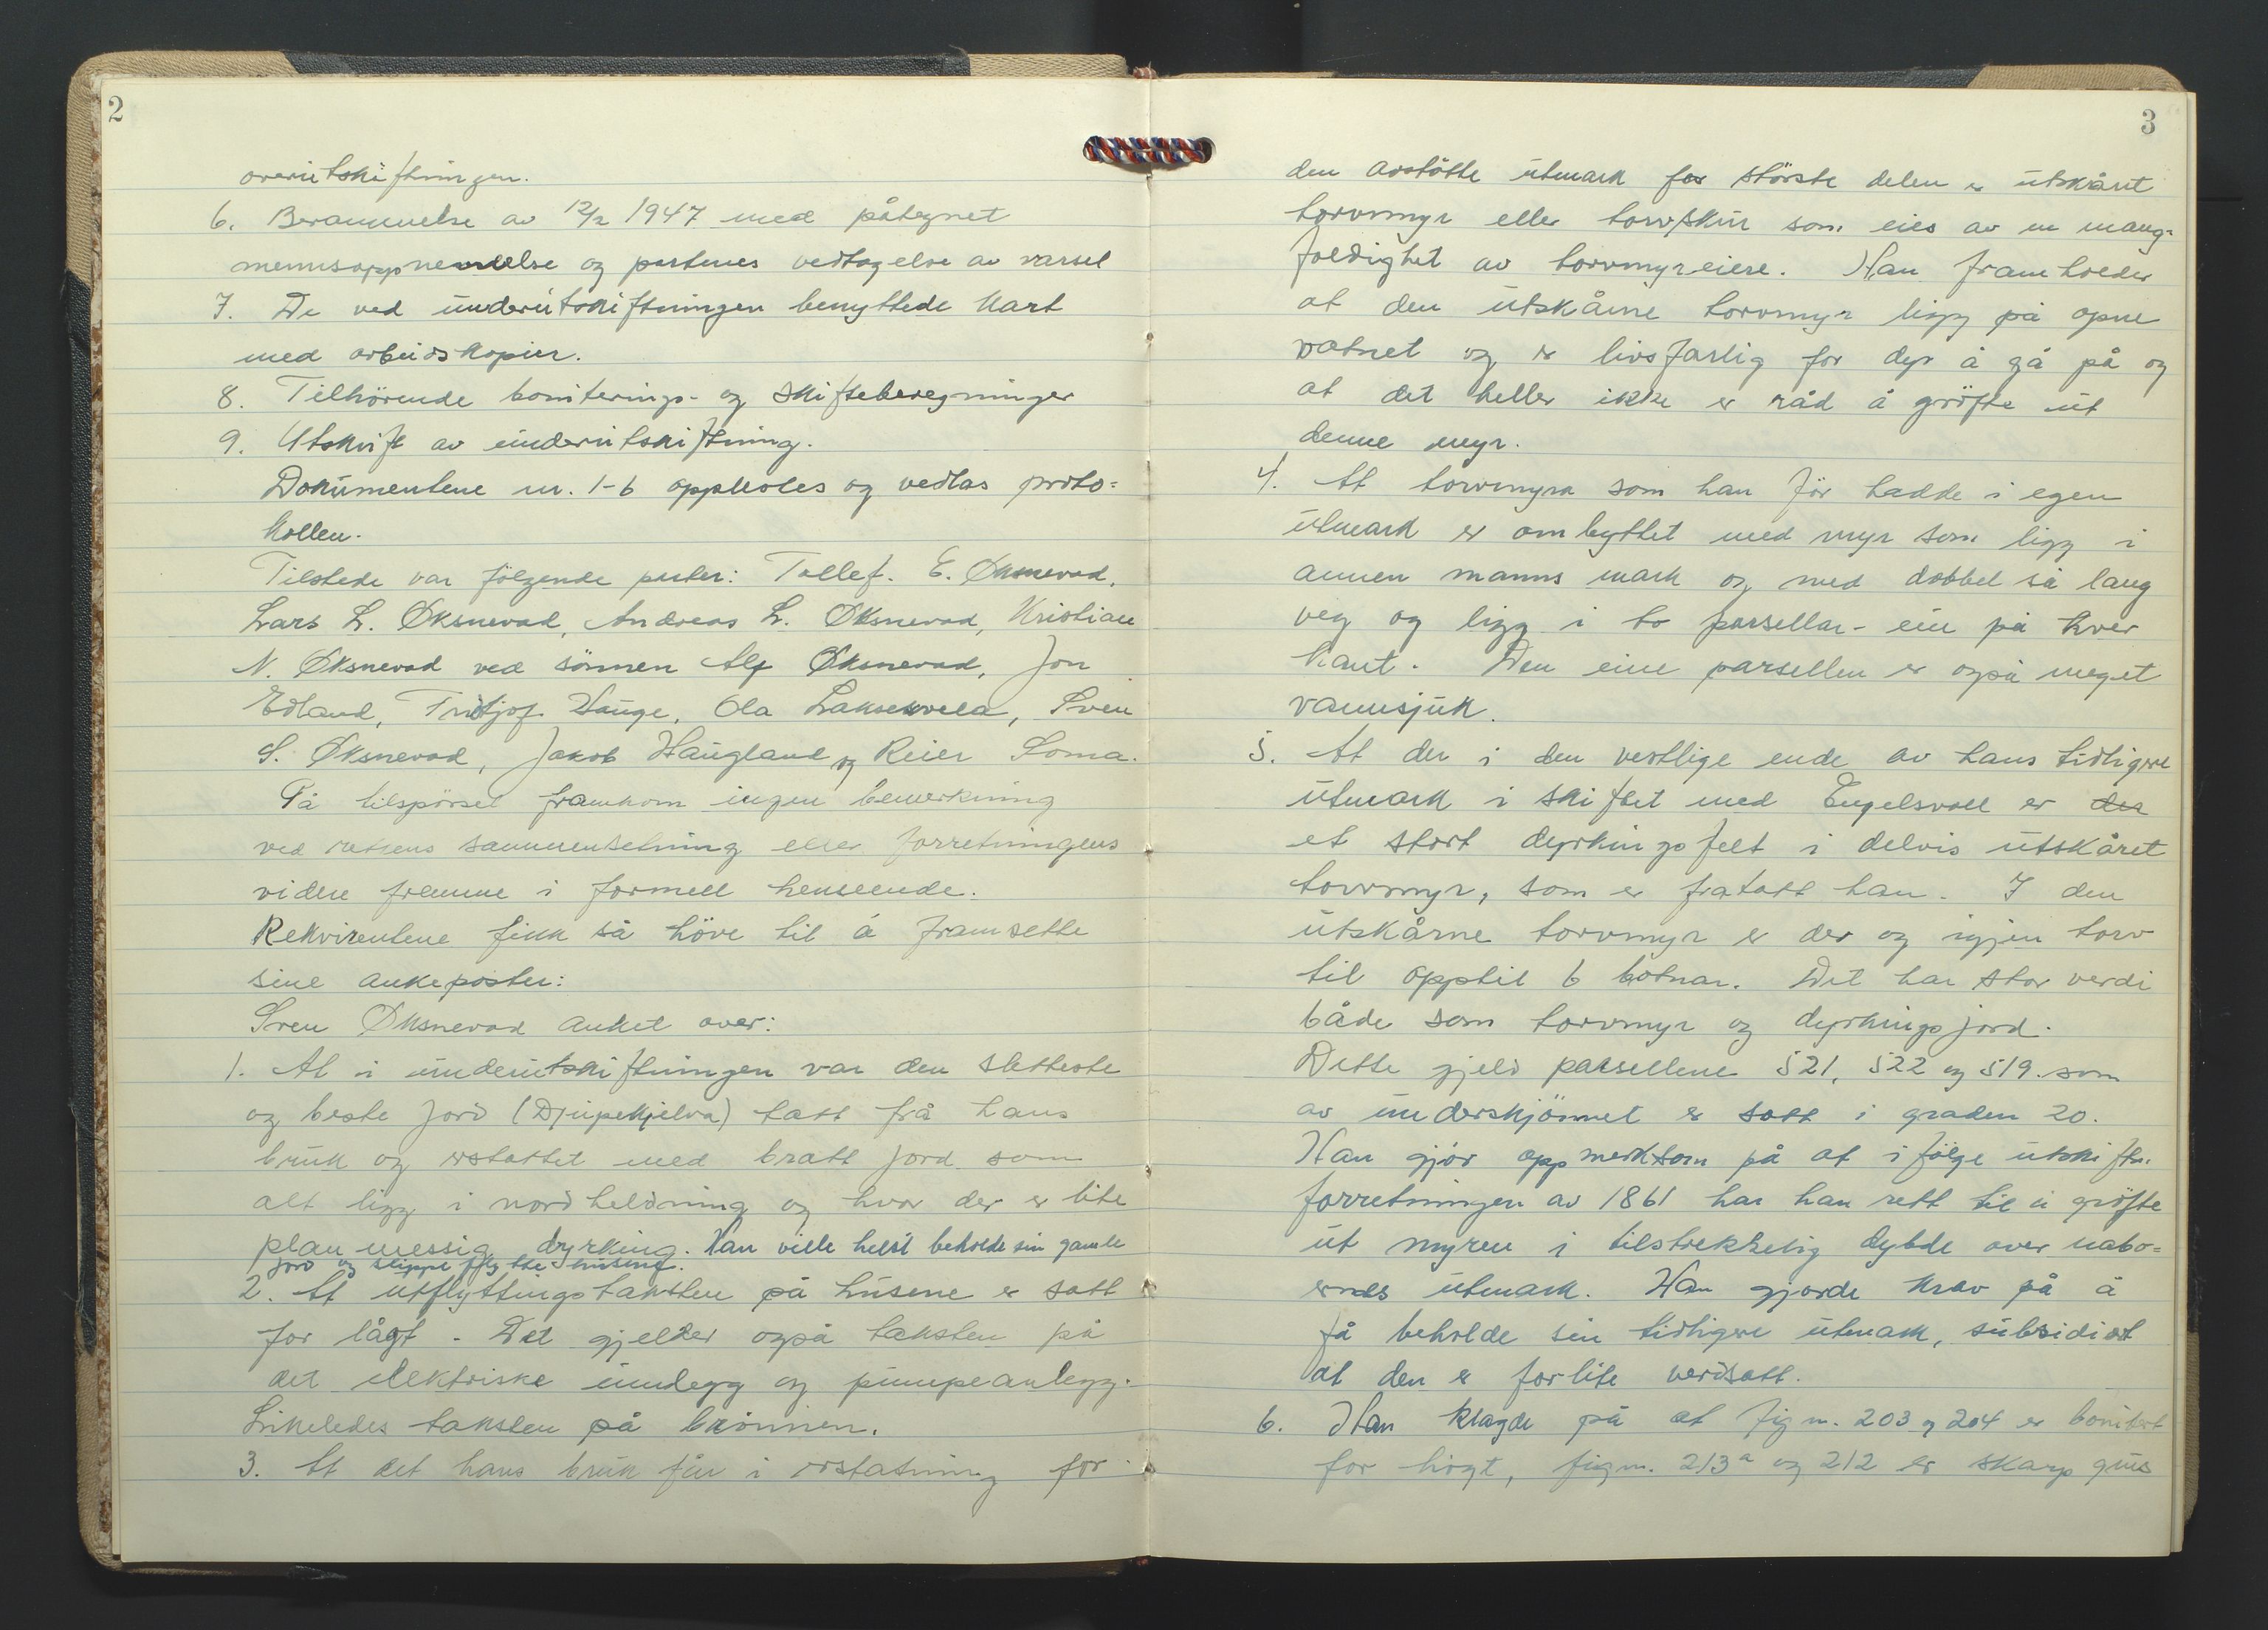 2
overutskiftningen.
6. Berammelse av 12/2 1947 med påtegnet
mennsoppnevnelse og partenes vedtagelse av varsel
7. De ved underutskiftningen benyttede kart
med arbeidskopier.
8. Tilhörende boniterings- og skifteberegninger
9. Utskrift av underutskiftning.
Dokumentene nr. 1-6 opplestes og vedlas proto=
kollen.
Tilstede var fölgende parter: Tollef. E. Øksnevad,
Lars L. Øksnevad, Andreas L. Øksnevad, Kristian
N. Øksnevad ved sönnen Alf Øksnevad, Jon
Edland, Fridtjof Hauge, Ola Laksesvela, Sven
S. Øksnevad, Jakob Haugland og Reier Soma.
På tilspörsel framkom ingen bemerkning
ved rettens sammensetning eller forretningens
videre fremme i formell henseende.
Rekvirentene fikk så höve til å framsette
sine ankeposter:
Sven Øksnevad anket over:
1. At i underutskiftningen var den sletteste
og beste jord (Djupekjelva) tatt frå hans
bruk og erstattet med bratt jord som
alt ligg i nordheldning og hvor der er lite
planmessig dyrking. Han ville helst beholde sin gamle
jord og slippe flytte husene.
2. At utflyttingstaksten på husene er satt
for lågt. Det gjelder også taksten på
det elektriske innlegg og pumpeanlegg.
Likeledes taksten på brönnen.
3. At det hans bruk får i erstatning for
3
den avståtte utmark for störste delen er utskåret
torvmyr eller torvskur som eies av en mang=
foldighet av torvmyreiere. Han framholder
at den utskårne torvmyr ligg på opne
vatnet og er livsfarlig for dyr å gå på og
at det heller ikke er råd å gröfte ut
denne myr.
4. At torvmyra som han för hadde i egen
utmark er ombyttet med myr som ligg i
annen manns mark og med dobbel så lang
veg og ligg i to parsellar - ein på kver
kant. Den eine parsellen er også meget
vannsjuk.
5. At der i den vestlige ende av hans tidligere
utmark i skiftet med Engelsvoll er der
et stort dyrkingsfelt i delvis utskåret
torvmyr, som er fratatt han. I den
utskårne torvmyr er der og igjen torv
til opptil 6 botnar. Det har stor verdi
både som torvmyr og dyrkingsjord.
Dette gjeld parsellene 521, 522 og 519. som
av underskjönnet er satt i graden 20.
Han gjör oppmerksom på at i fölge utskiftn.
forretningen av 1861 har han rett til å gröfte
ut myren i tilstrekkelig dybde over nabo=
ernes utmark. Han gjorde krav på å
få beholde sin tidligere utmark, subsidiert
at den er forlite verdsatt.
6. Han klagde på at fig nr. 203 og 204 er bonitert
for högt, fig nr. 213a og 212 er skarp grus